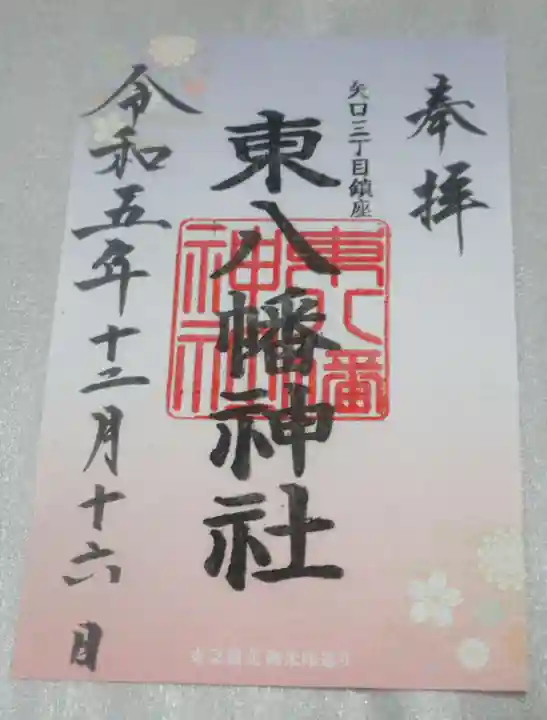 奉拝
矢口三丁目鎮座
東八幡神社
東八幡
神社
令和五年十二月十六日